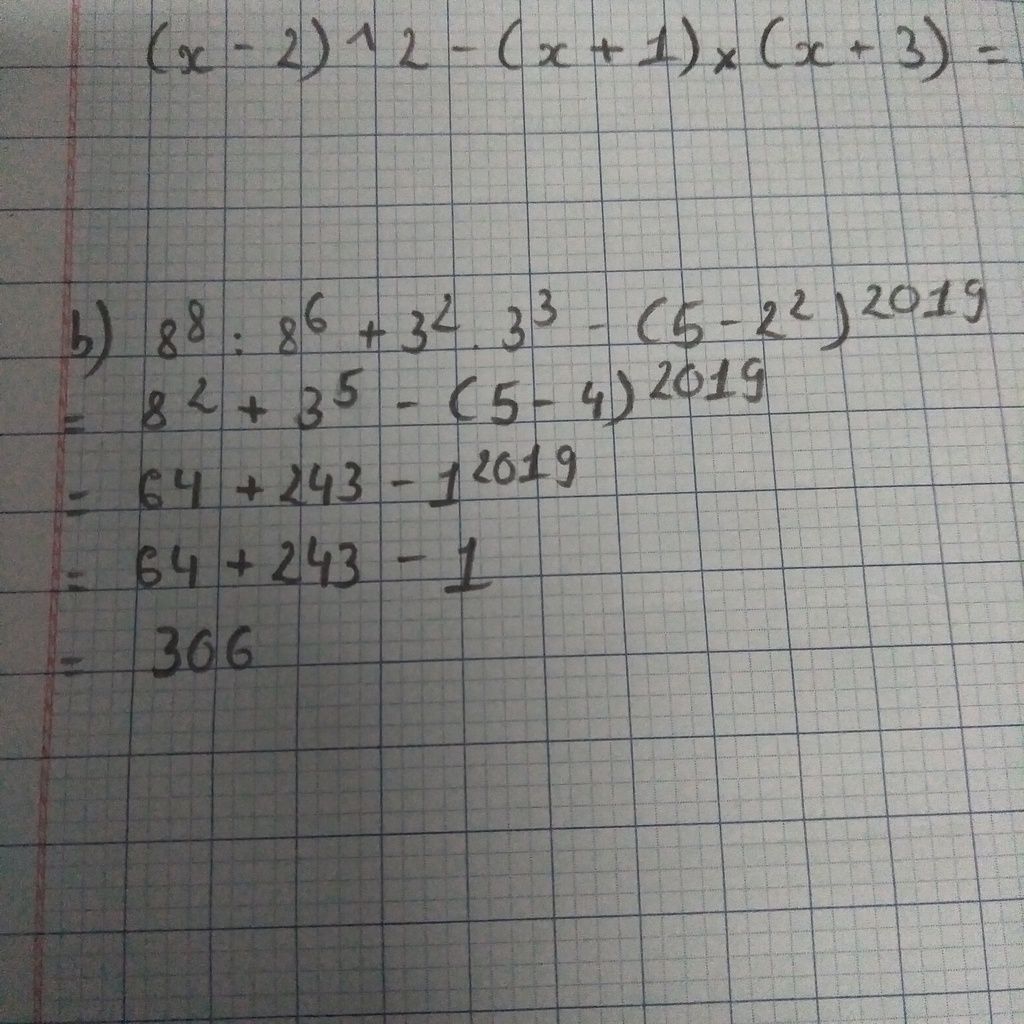 (x - 2) ^ 2 - (x + 1) × (x + 3) =
b) 8⁸ : 8⁶ + 3² . 3³ - (5 - 2²)²⁰¹⁹
= 8² + 3⁵ - (5 - 4)²⁰¹⁹
= 64 + 243 - 1²⁰¹⁹
= 64 + 243 - 1
= 306